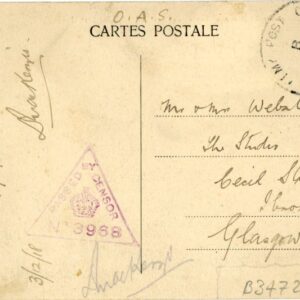 O.A.S.
CARTES POSTALE
POST
Mr & Mrs Webst
The Studio
Cecil St
Ibro
Glasgow
PASSED BY CENSOR
3968
3/12/18
B3472